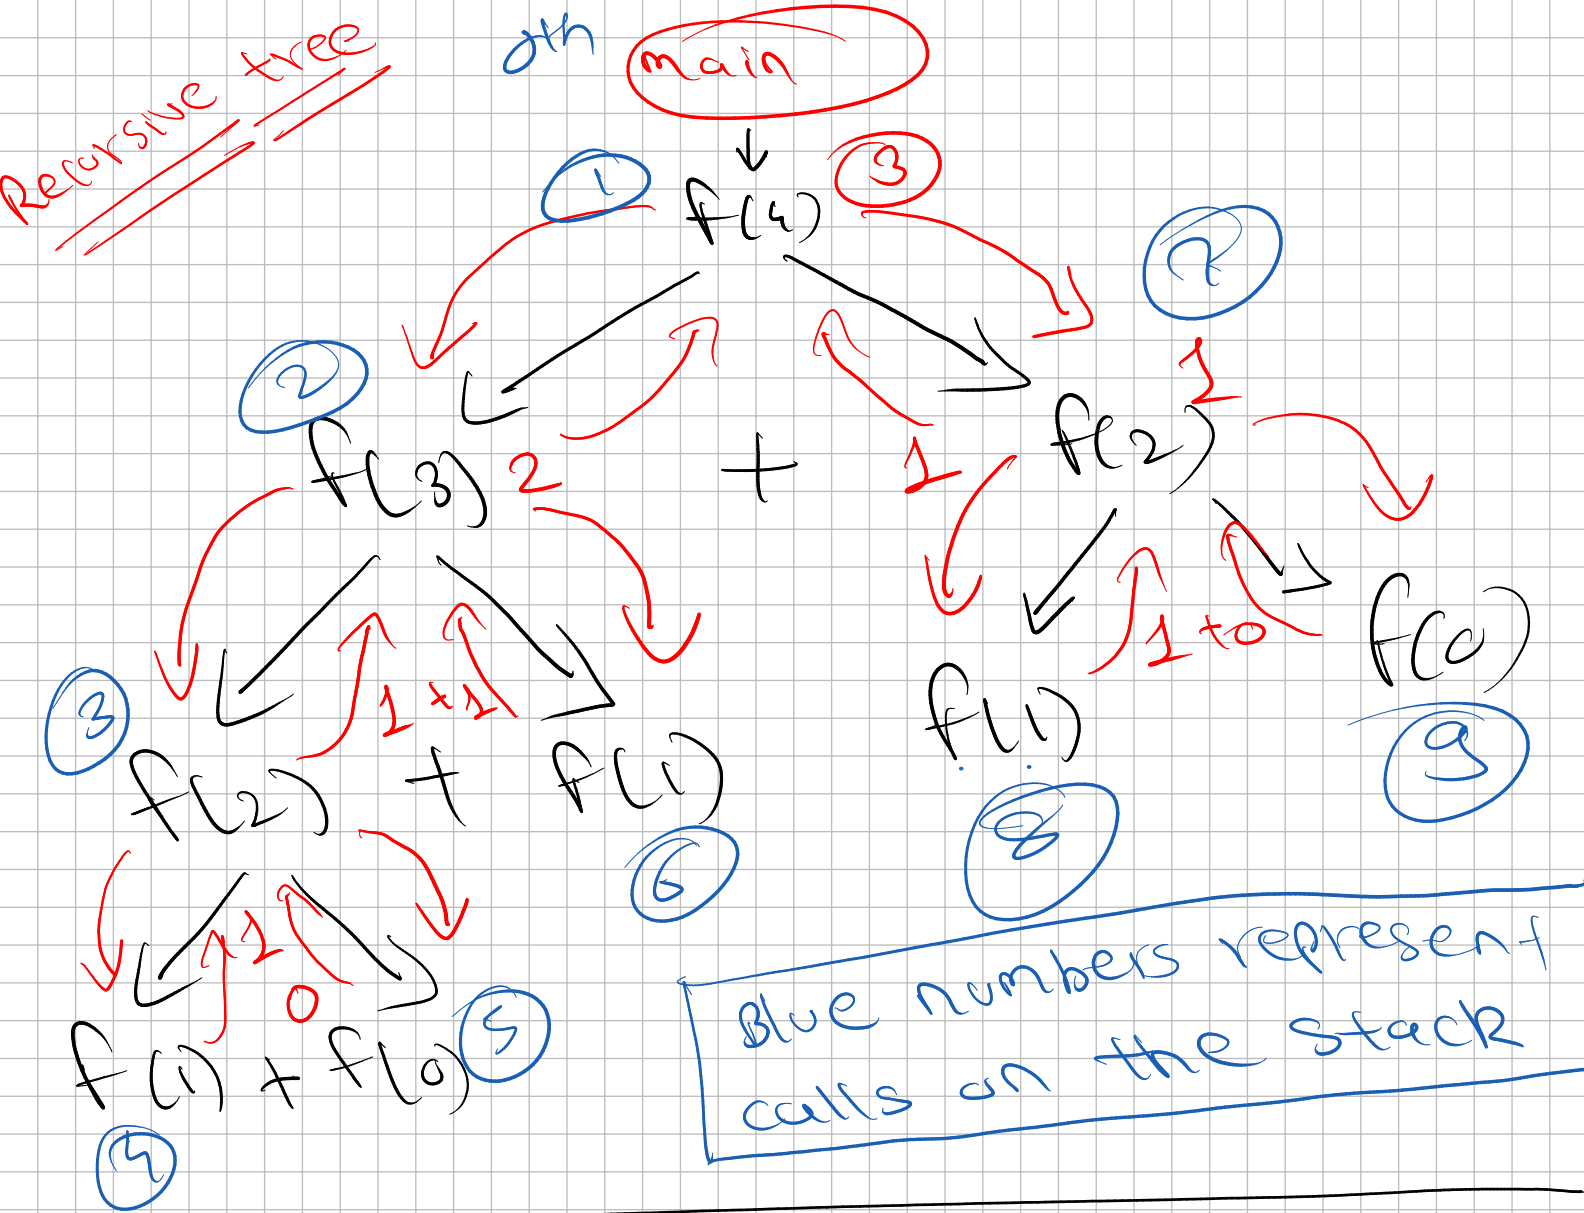 Recorsive tree
0th
main
1
3
f(4)
2
7
f(3) 2
+
1
f(2)
1
3
1 +1
1 +0
f(2) + f(1)
f(1)
f(0)
6
8
9
1
0
f(1) + f(0)
5
4
Blue numbers represent
calls on the stack